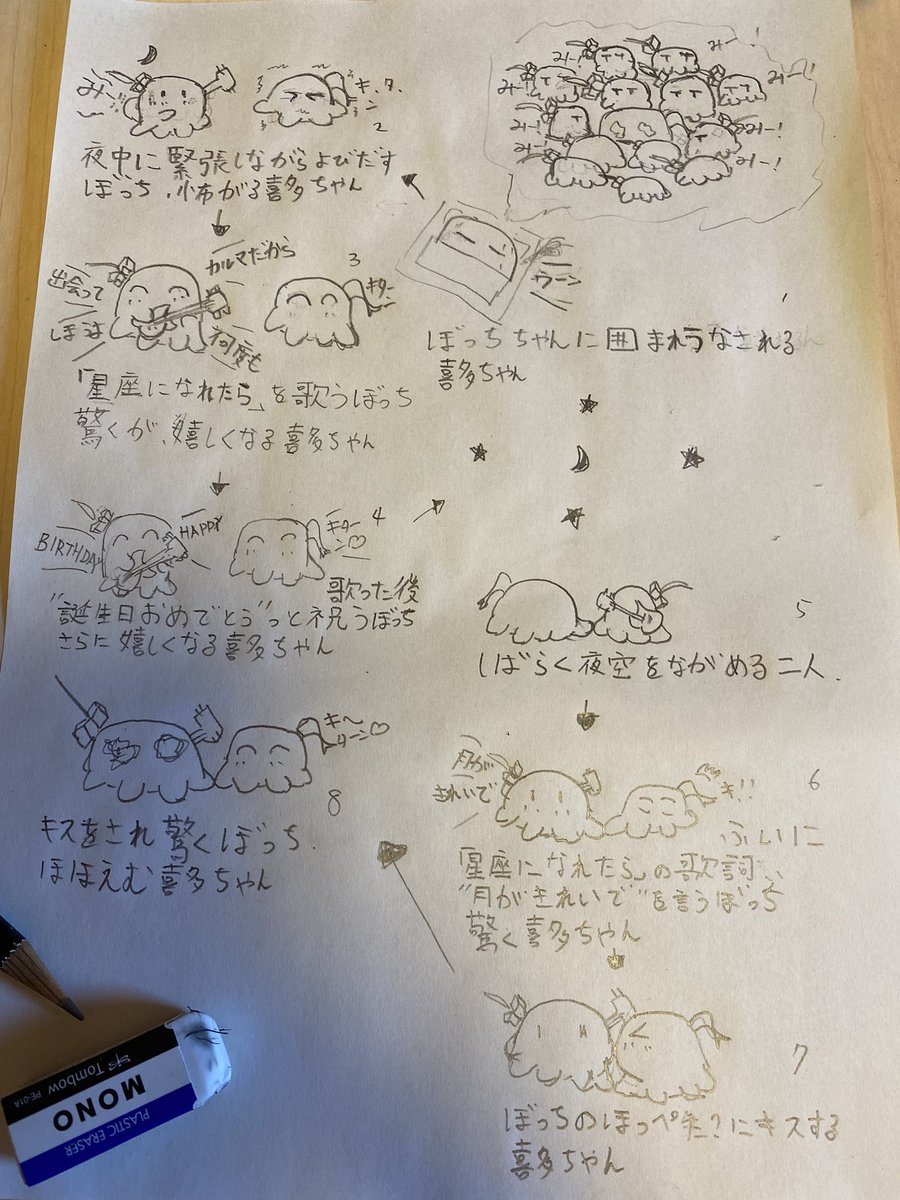 みー!
みー!
みー!
みー!
みー!
みー!
みー!
みー!
ウーン
1
ぼっちちゃんに囲まれうなされる
喜多ちゃん
み〜
キ、タ、
ン
2
夜中に緊張しながらよびだす
ぼっち、怖がる喜多ちゃん
出会って
ほうは
カルマだから
何度も
3
キター
「星座になれたら」を歌うぼっち
驚くが、嬉しくなる喜多ちゃん
HAPPY
BIRTHDAY
キター
ン♡
4
歌った後
"誕生日おめでとう"っと祝うぼっち
さらに嬉しくなる喜多ちゃん
5
しばらく夜空をながめる二人.
月が
きれいで
キ!!
6
ふいに
「星座になれたら」の歌詞、
"月がきれいで"を言うぼっち
驚く喜多ちゃん
7
ぼっちのほっぺた?にキスする
喜多ちゃん
キ〜
ターン♡
8
キスをされ驚くぼっち.
ほほえむ喜多ちゃん
Tombow
PE-01A
MONO
PLASTIC ERASER